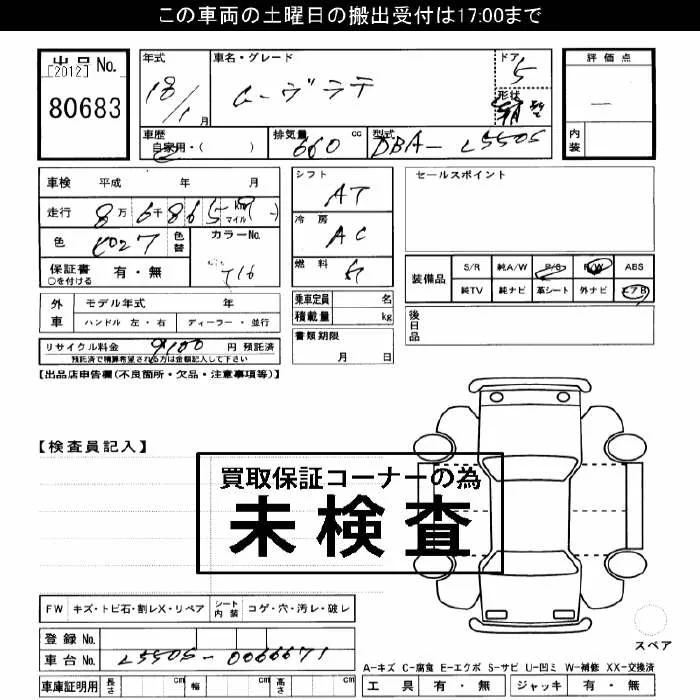 この車両の土曜日の搬出受付は17:00まで
出品No.
[2012]
80683
年式
18/1月
車名・グレード
ムーヴラテ
ドア
5
形状
評価点
—
内装
車歴
自家用・( )
排気量
660 cc
型式
DBA-L550S
車検 平成 年 月
走行 8万 6千 865 km マイル
色
色替
カラーNo.
T16
保証書 有・無
○を付ける
シフト
AT
冷房
AC
燃料
ガ
セールスポイント
装備品
S/R 純A/W P/S P/W ABS
純TV 純ナビ 革シート 外ナビ エアB
外車
モデル年式 年
ハンドル 左・右 ディーラー・並行
乗車定員 名
積載量 kg
後日品
リサイクル料金 9100 円 預託済
預託済で精算希望される方は金額記入して下さい
書類期限
月 日
【出品店申告欄(不良箇所・欠品・注意事項等)】
【検査員記入】
買取保証コーナーの為
未検査
FW キズ・トビ石・割レX・リペア シート内装 コゲ・穴・汚レ・破レ
スペア
登録No.
車台No. L550S-0066671
A-キズ C-腐食 E-エクボ S-サビ U-凹ミ W-補修 XX-交換済
車庫証明用 長さ cm 幅 cm 高さ cm
工具 有・無 ジャッキ 有・無